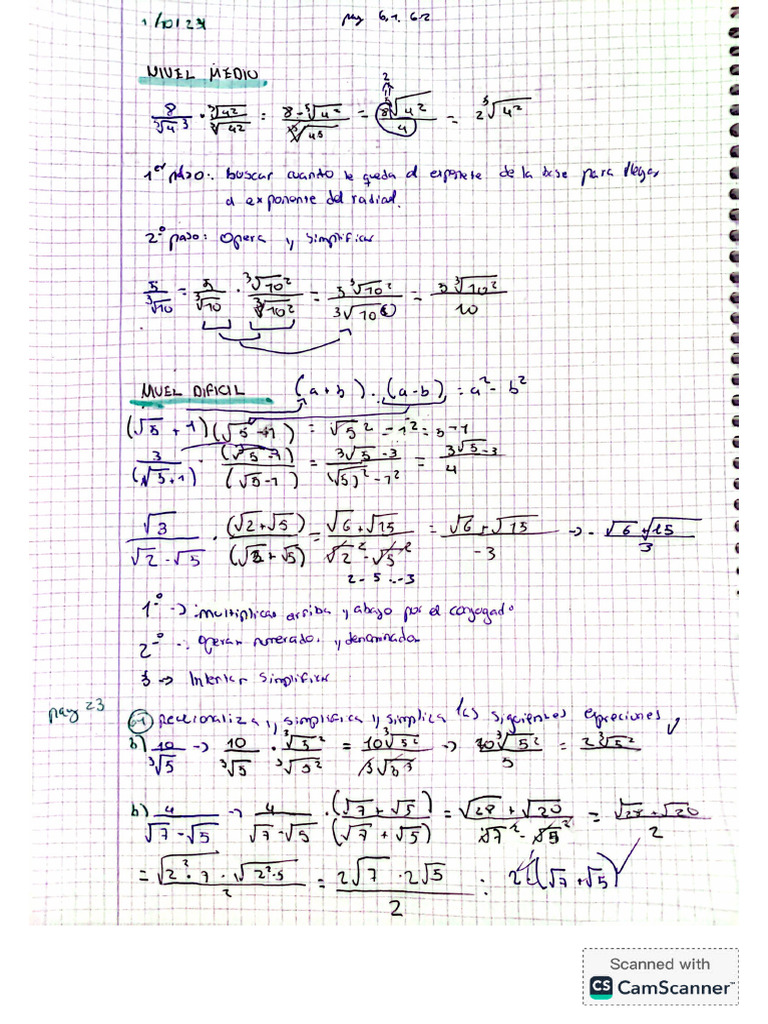 1/10/24 pag 61. 62
NIVEL MEDIO
8/⁵√4³ · ⁵√4²/⁵√4² = 8·⁵√4²/⁵√4⁵ = 8⁵√4²/4 = 2⁵√4²
1er paso: buscar cuando le queda al exponete de la base para llegar
a exponente del radical.
2º paso: Opera y simplificar
5/³√10 = 5/³√10 · ³√10²/³√10² = 5³√10²/³√10³ = 5³√10²/10
NIVEL DIFICIL (a+b)·(a-b) = a² - b²
(√5+1)(√5-1) = √5² - 1² = 5-1
3/(√5+1) · (√5-1)/(√5-1) = 3√5-3/(√5)²-1² = 3√5-3/4
√3/√2-√5 · (√2+√5)/(√2+√5) = √6+√15/√2²-√5² = √6+√15/-3 → - √6+√15/3
2-5=-3
1º → multiplicar arriba y abajo por el conjugado
2º operar numerado. y denominador
3 → Intentar simplificar
pag 23
racionaliza y simplifica y simplica las siguientes expreciones
b) 10/³√5 → 10/³√5 · ³√5²/³√5² = 10³√5²/³√5³ → 10³√5²/5 = 2³√5²
b) 4/√7-√5 → 4/√7-√5 · (√7+√5)/(√7+√5) = √28+√20/√7²-√5² = √28+√20/2
= √2²·7 · √2²·5/2 = 2√7 · 2√5/2 : 2(√7+√5)
Scanned with
CS CamScanner™